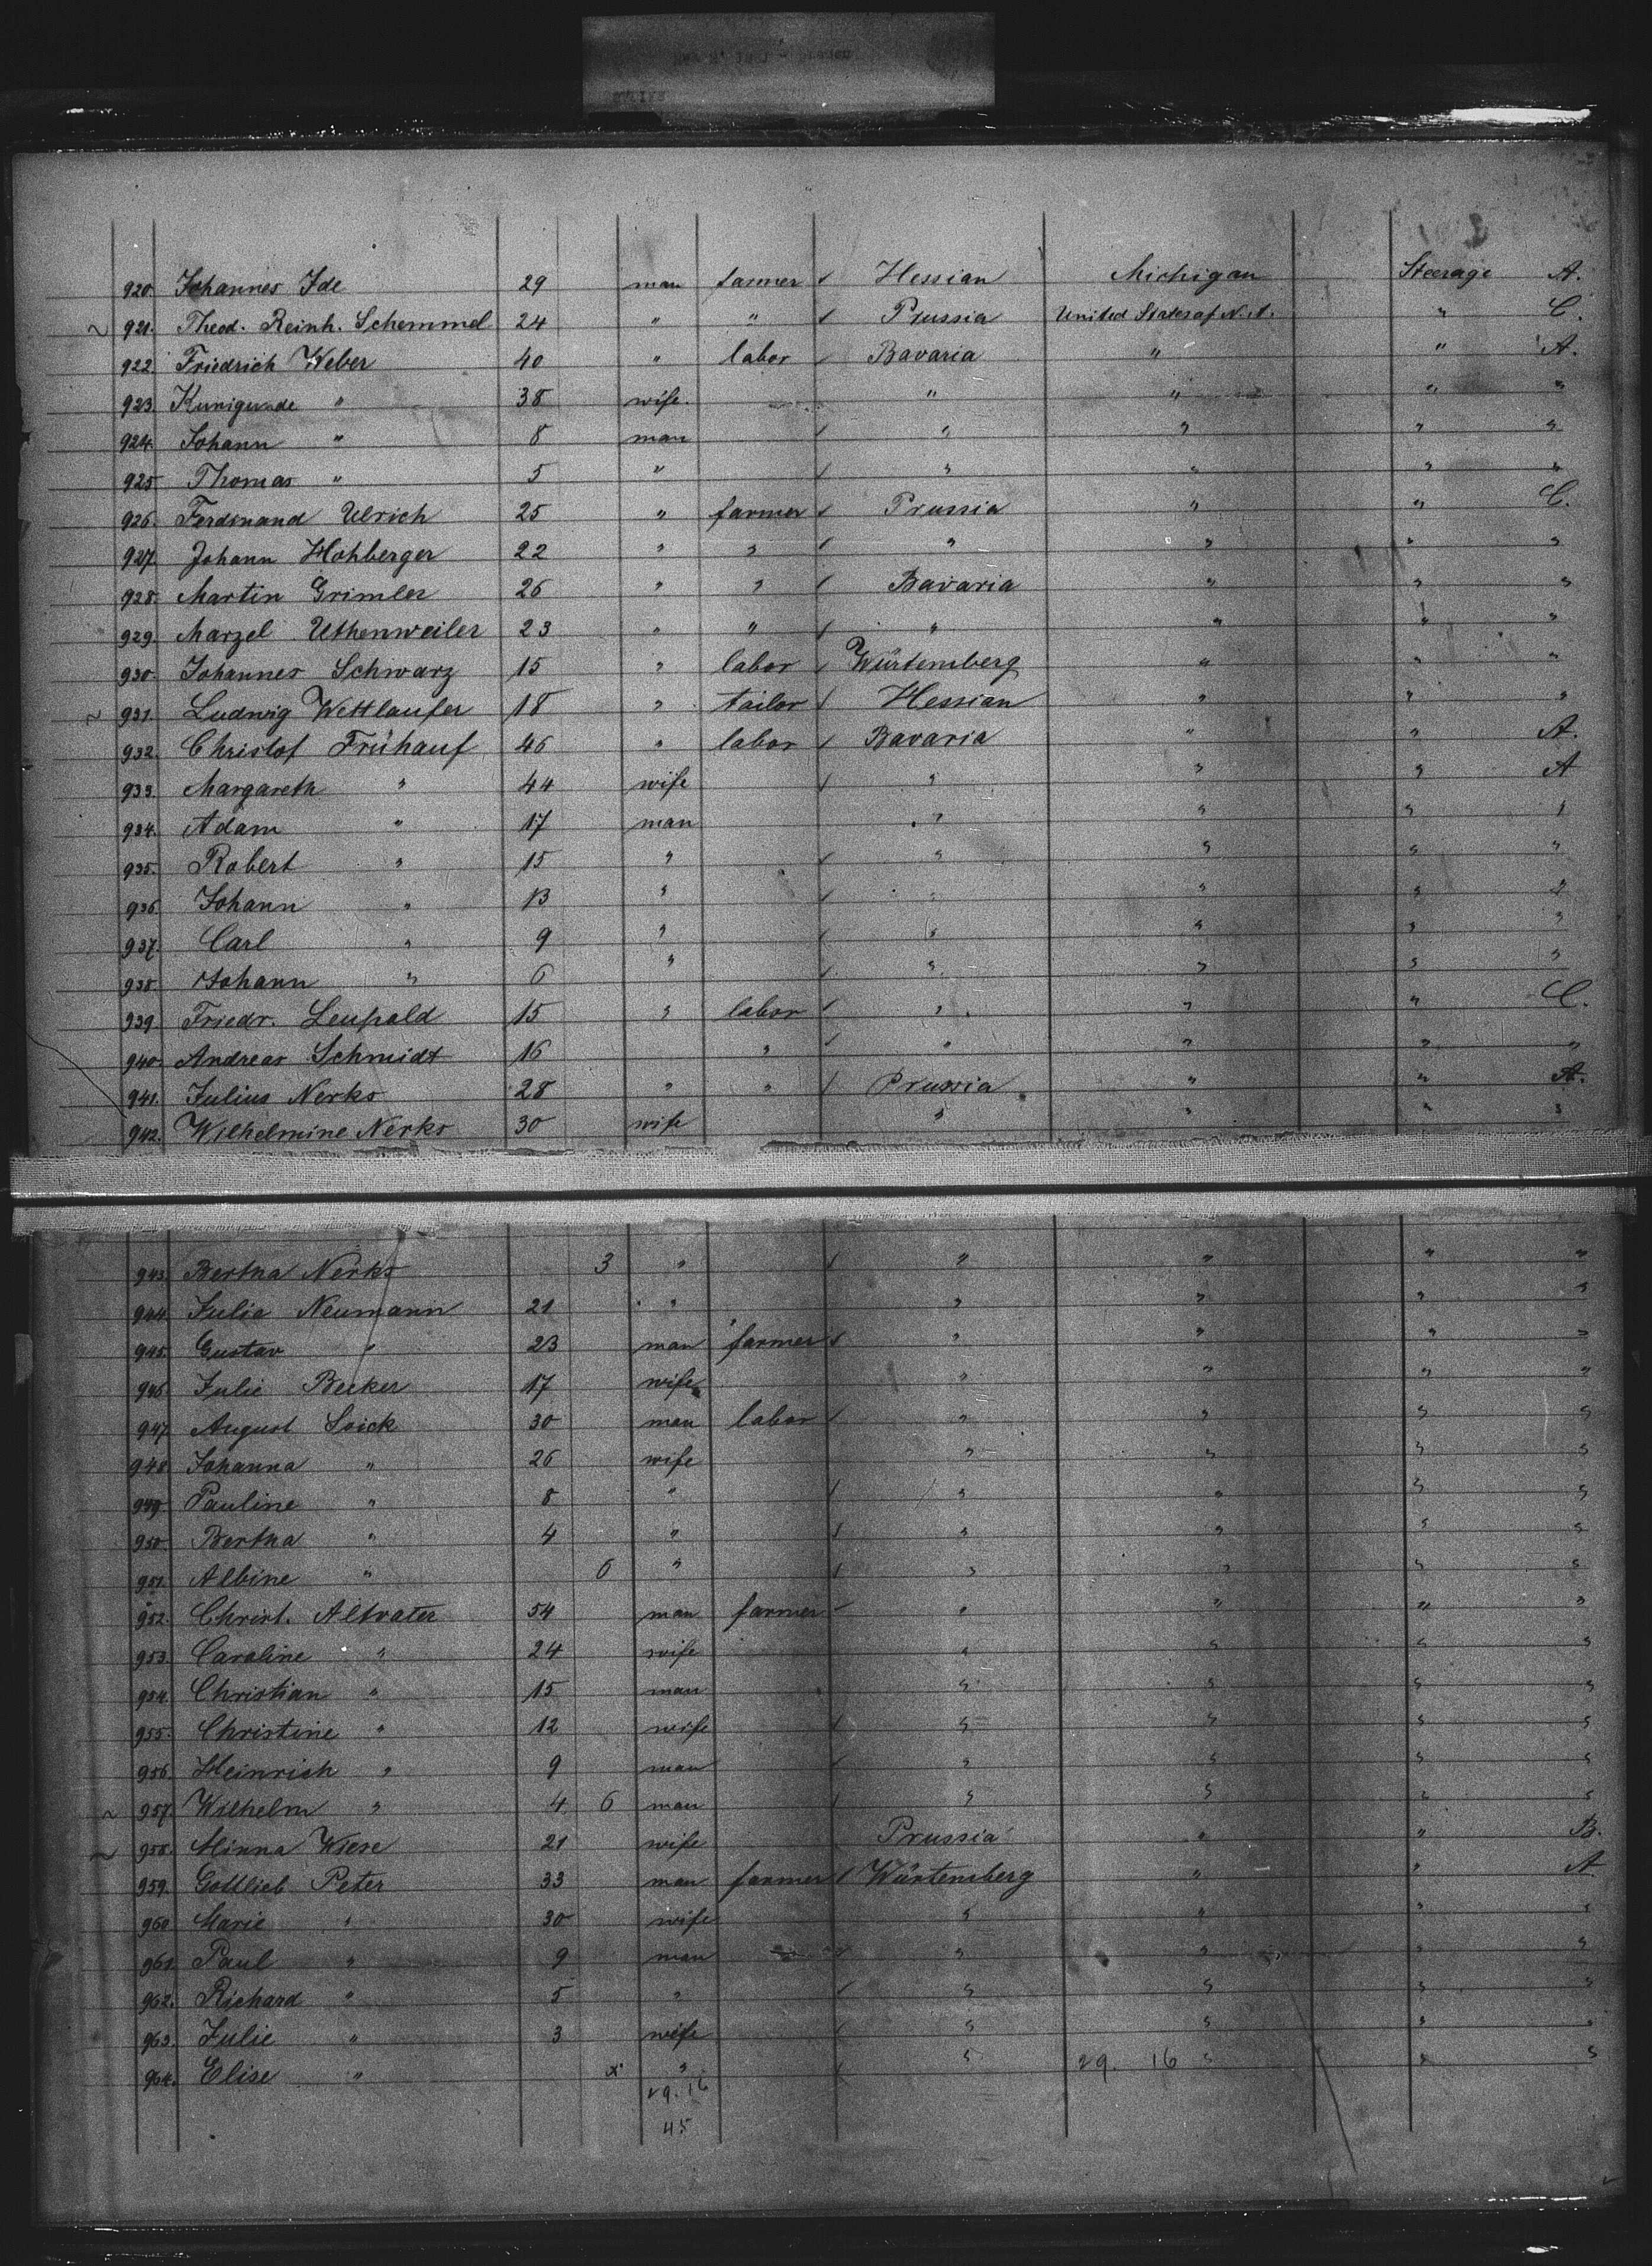 920. Johannes Ide 29 man farmer Hessian Michigan Steerage A.
921. Theod. Reinh. Schemmel 24 " " Prussia United States of N. A. " C.
922. Friedrich Weber 40 " labor Bavaria " " A.
923. Kunigunde " 38 wife " " " "
924. Johann " 8 man " " " "
925. Thomas " 5 " " " " "
926. Ferdinand Ulrich 25 " farmer Prussia " " C.
927. Johann Hohberger 22 " " " " " "
928. Martin Grimler 26 " " Bavaria " " "
929. Marzel Uthenweiler 23 " " " " " "
930. Johannes Schwarz 15 " labor Würtemberg " " "
931. Ludwig Wettlaufer 18 " tailor Hessian " " "
932. Christof Frühauf 46 " labor Bavaria " " A.
933. Margareth " 44 wife " " " A
934. Adam " 17 man " " " "
935. Robert " 15 " " " " "
936. Johann " 13 " " " " "
937. Carl " 9 " " " " "
938. Johann " 6 " " " " "
939. Friedr. Leupald 15 " labor " " " C.
940. Andreas Schmidt 16 " " " " "
941. Julius Nerks 28 " " Prussia " " A.
942. Wilhelmine Nerks 30 wife " " " "
943. Bertha Nerks 3 " " " " "
944. Julia Neumann 21 " " " " "
945. Gustav " 23 man farmer " " " "
946. Julie Becker 17 wife " " " "
947. August Soick 30 man labor " " " "
948. Johanna " 26 wife " " " "
949. Pauline " 8 " " " " "
950. Bertha " 4 " " " " "
951. Albine " 6 " " " " "
952. Christ. Altvater 54 man farmer " " " "
953. Caroline " 24 wife " " " "
954. Christian " 15 man " " " "
955. Christine " 12 wife " " " "
956. Heinrich " 9 man " " " "
957. Wilhelm " 4 6 man " " " "
958. Minna Wiese 21 wife Prussia " " B.
959. Gottlieb Peter 33 man farmer Würtemberg " " A
960. Marie " 30 wife " " " "
961. Paul " 9 man " " " "
962. Richard " 5 " " " " "
963. Julie " 3 wife " " " "
964. Elise " " " 29. 16 " " "
29. 16
45